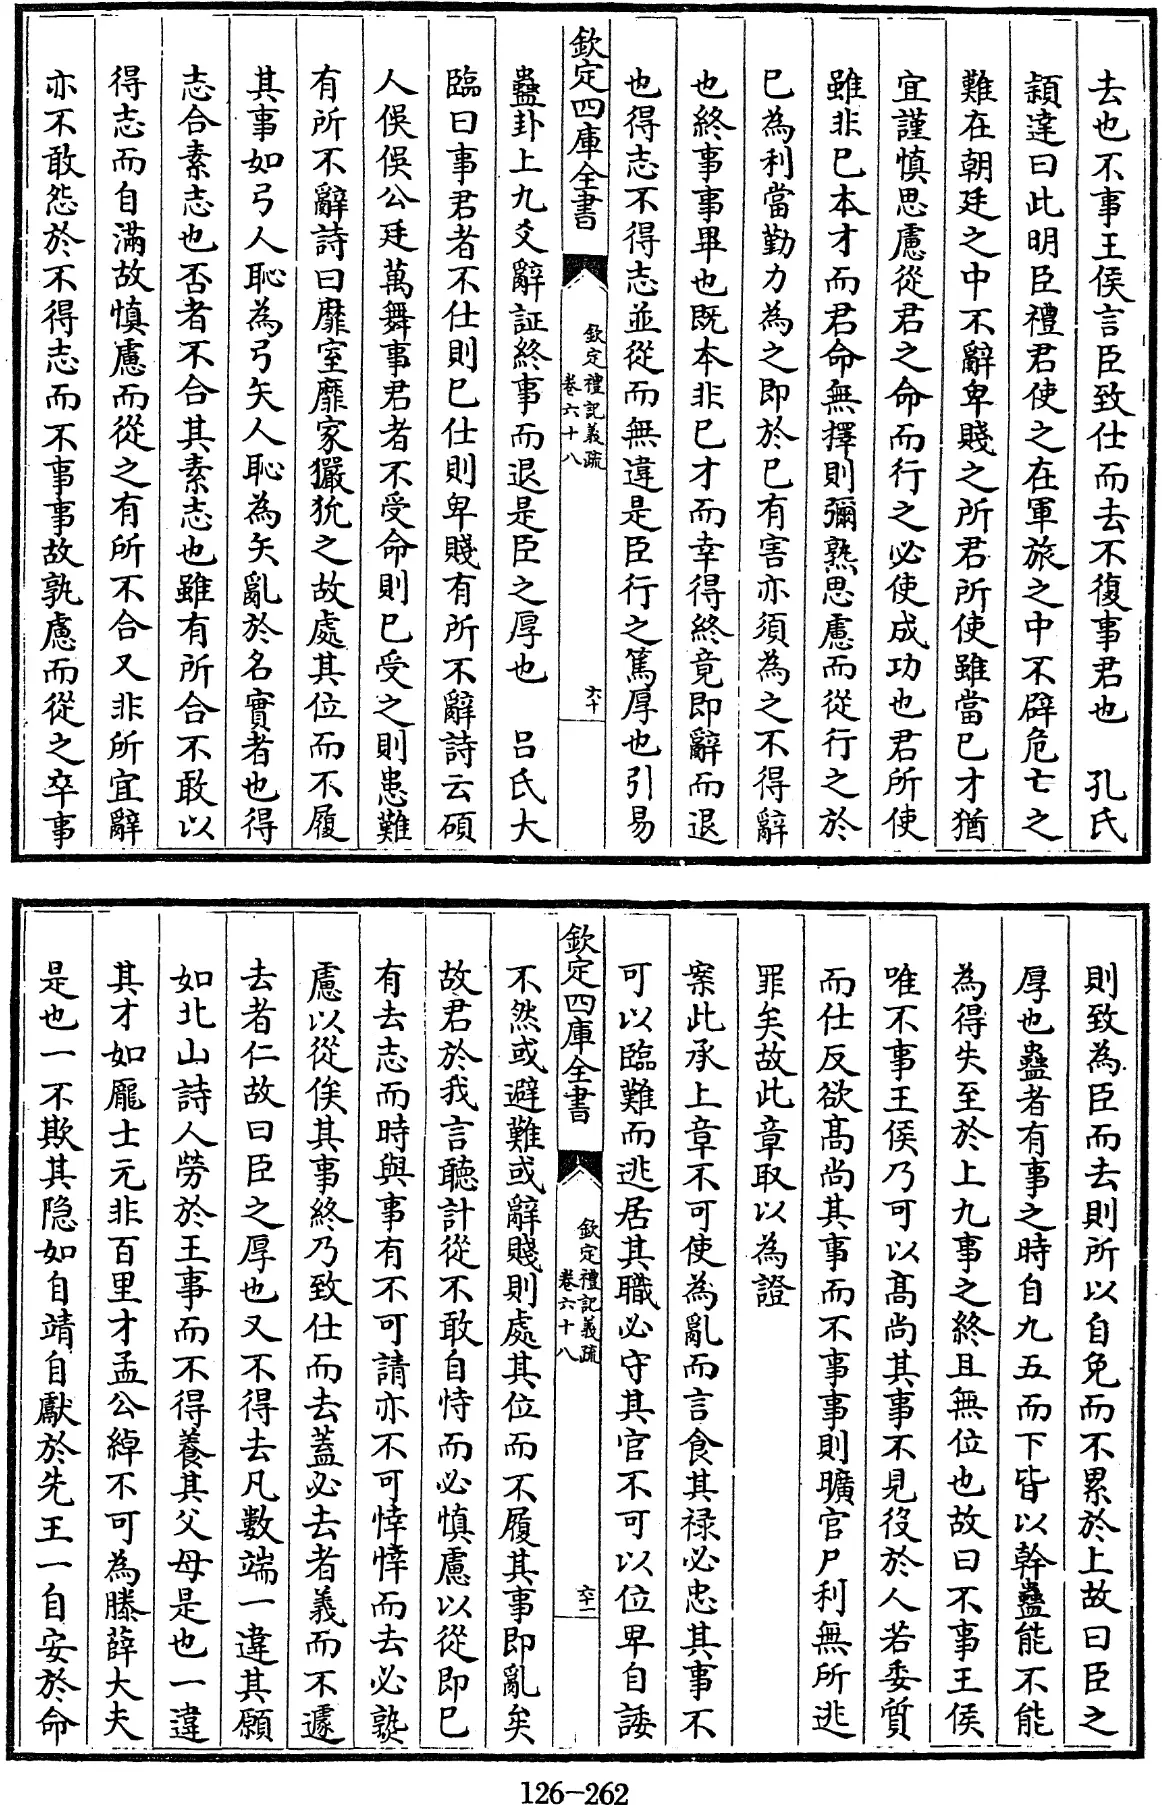 去也不事王侯言臣致仕而去不復事君也　孔氏
穎達曰此明臣禮君使之在軍旅之中不辟危亡之
難在朝廷之中不辭卑賤之所君所使雖當已才猶
宜謹慎思慮從君之命而行之必使成功也君所使
雖非已本才而君命無擇則彌熟思慮而從行之於
已為利當勤力為之即於已有害亦須為之不得辭
也終事事畢也既本非已才而幸得終竟即辭而退
也得志不得志並從而無違是臣行之篤厚也引易
欽定四庫全書
欽定禮記義疏
卷六十八
六十
蠱卦上九爻辭証終事而退是臣之厚也　呂氏大
臨曰事君者不仕則已仕則卑賤有所不辭詩云碩
人俁俁公廷萬舞事君者不受命則已受之則患難
有所不辭詩曰靡室靡家玁狁之故處其位而不履
其事如弓人恥為弓矢人恥為矢亂於名實者也得
志合素志也否者不合其素志也雖有所合不敢以
得志而自滿故慎慮而從之有所不合又非所宜辭
亦不敢怨於不得志而不事事故孰慮而從之卒事
則致為臣而去則所以自免而不累於上故曰臣之
厚也蠱者有事之時自九五而下皆以幹蠱能不能
為得失至於上九事之終且無位也故曰不事王侯
唯不事王侯乃可以高尚其事不見役於人若委質
而仕反欲高尚其事而不事事則曠官尸利無所逃
罪矣故此章取以為證
案此承上章不可使為亂而言食其祿必忠其事不
可以臨難而逃居其職必守其官不可以位卑自諉
欽定四庫全書
欽定禮記義疏
卷六十八
六十一
不然或避難或辭賤則處其位而不履其事即亂矣
故君於我言聽計從不敢自恃而必慎慮以從即已
有去志而時與事有不可請亦不可悻悻而去必孰
慮以從俟其事終乃致仕而去蓋必去者義而不遽
去者仁故曰臣之厚也又不得去凡數端一違其願
如北山詩人勞於王事而不得養其父母是也一違
其才如龐士元非百里才孟公綽不可為滕薛大夫
是也一不欺其隐如自靖自獻於先王一自安於命
126-262